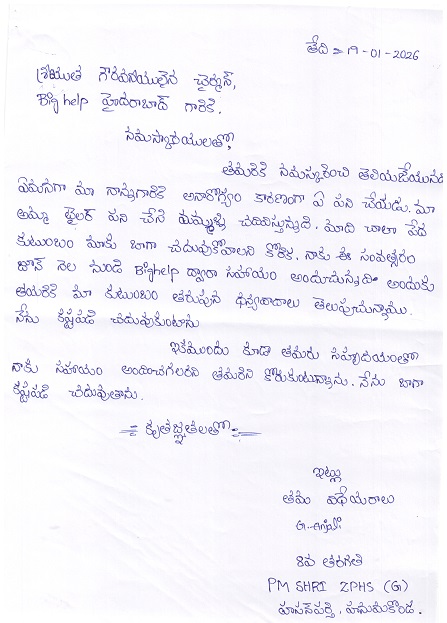 తేది :- 19-01-2026
శ్రీయుత గౌరవనీయులైన చైర్మన్,
Big help హైదరాబాద్ గారికి.
నమస్కారములతో,
తమరికి నమస్కరించి తెలియజేయునది
ఏమనగా మా నాన్నగారికి అనారోగ్యం కారణంగా ఏ పని చేయడు. మా
అమ్మ టైలర్ పని చేసి మమ్మల్ని చదివిస్తున్నది. మాది చాలా పేద
కుటుంబం మాకు బాగా చదువుకోవాలని కోరిక. నాకు ఈ సంవత్సరం
జూన్ నెల నుండి Bighelp ద్వారా సహాయం అందుచున్నది. అందుకు
తమరికి మా కుటుంబం తరుపున ధన్యవాదాలు తెలుపుచున్నాము.
నేను కష్టపడి చదువుకుంటాను
ఇకముందు కూడా తమరు సహృదయంతో
నాకు సహాయం అందించగలరని తమరిని కోరుకుంటున్నాను. నేను బాగా
కష్టపడి చదువుతాను.
కృతజ్ఞతలతో
ఇట్లు
తమ విధేయురాలు
G. Anjali
8వ తరగతి
PM SHRI ZPHS (G)
హసన్‌పర్తి, హనుమకొండ.